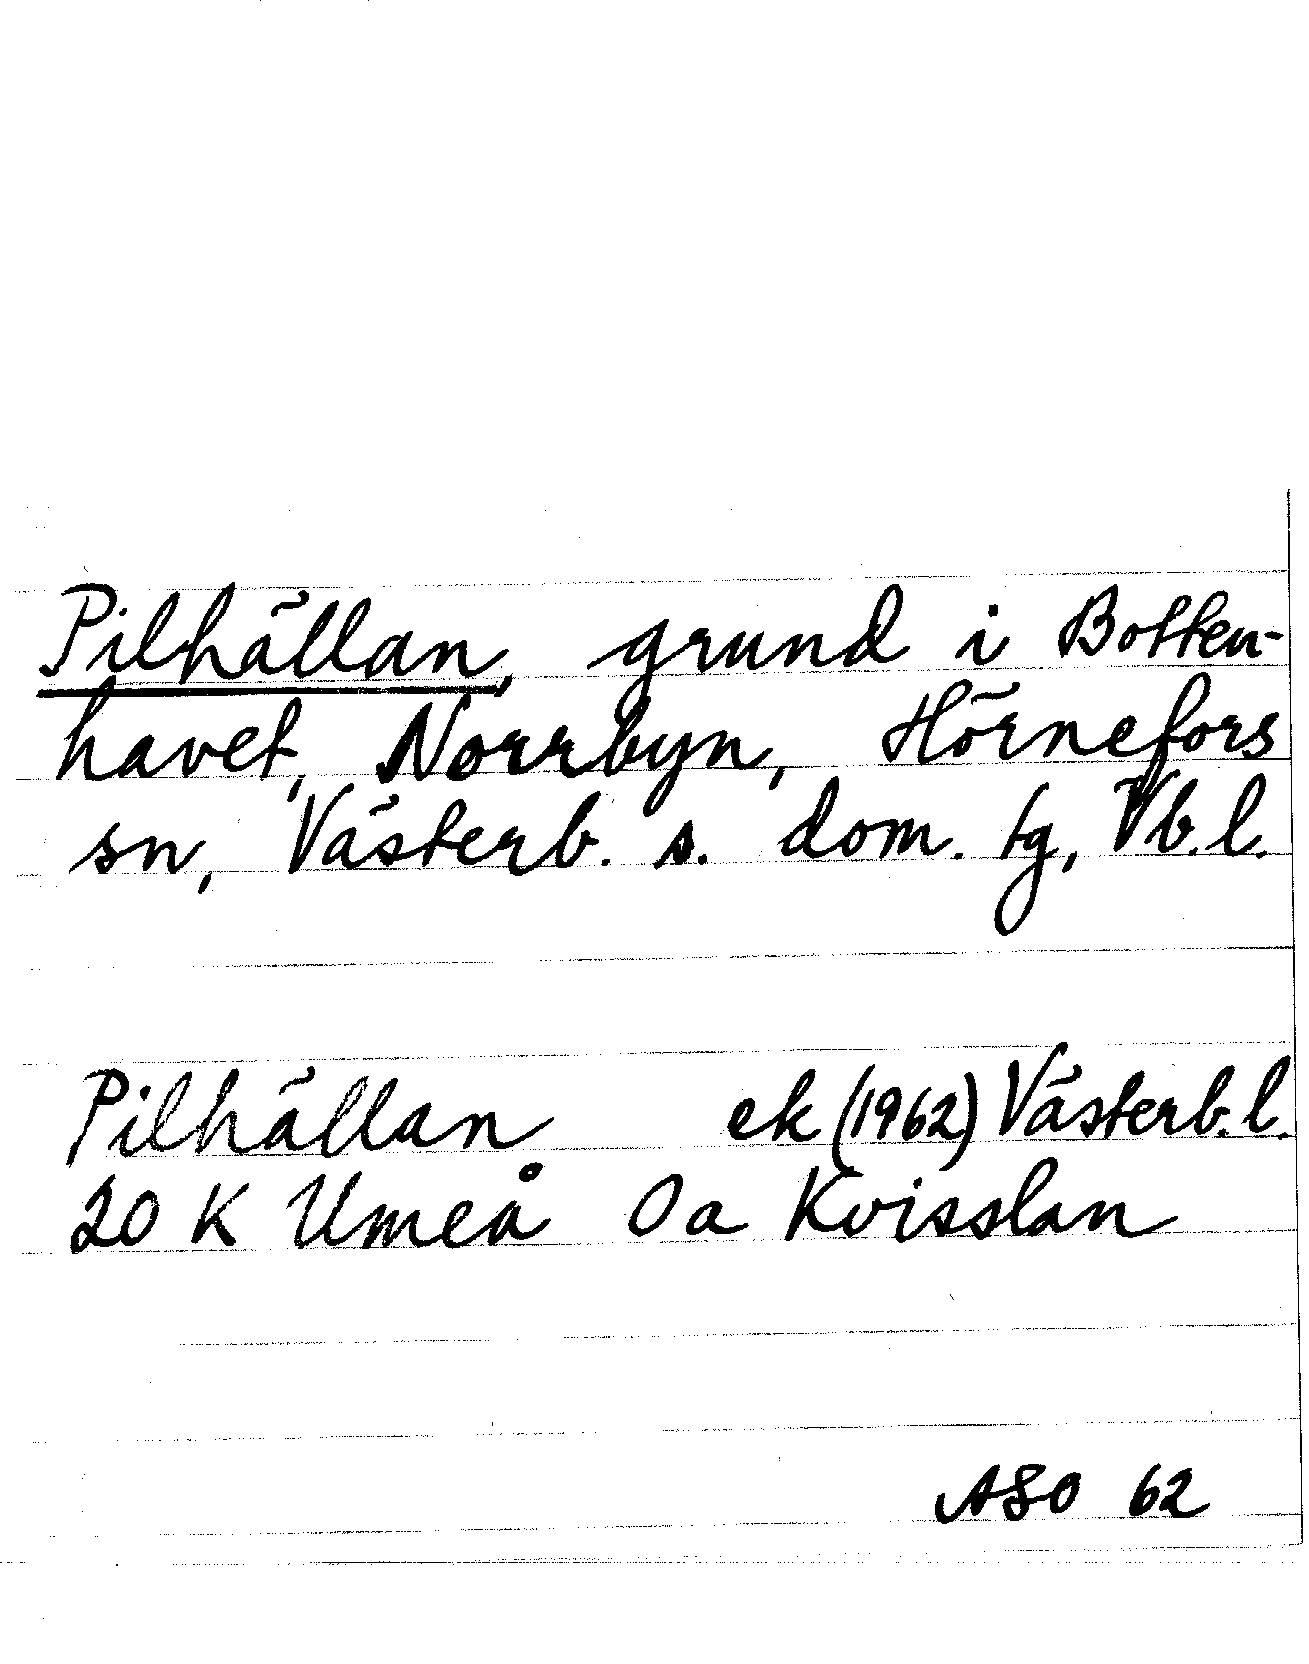 Pilhällan, grund i Botten-
havet, Norrbyn, Hörnefors
sn, Västerb. s. dom. tg, Vb. l.
Pilhällan ek (1962) Västerb. l.
20 K Umeå 0a Kvisslan
ASO 62